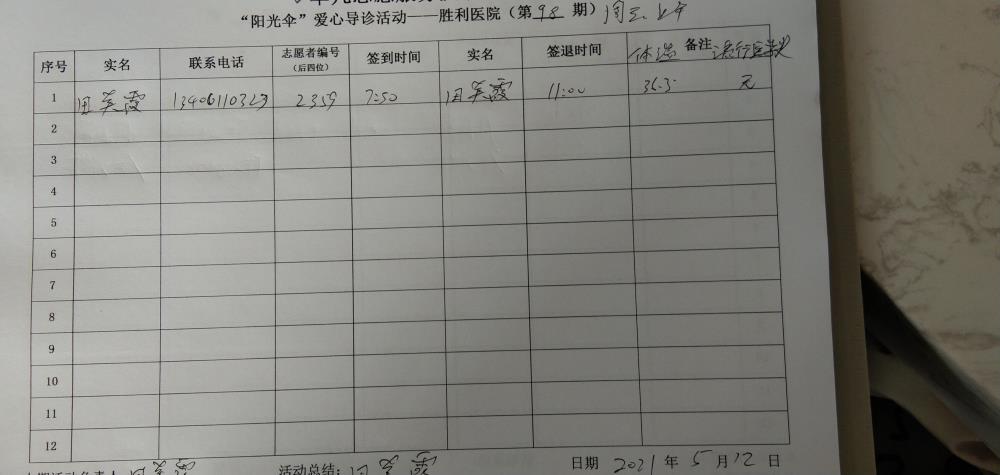 “阳光伞”爱心导诊活动——胜利医院（第98期）周三上午
序号 实名 联系电话 志愿者编号（后四位） 签到时间 实名 签退时间 体温 备注
1 田美霞 13406110323 2359 7:50 田美霞 11:00 36.3 无
2
3
4
5
6
7
8
9
10
11
12
活动总结：田美霞 日期 2021年5月12日